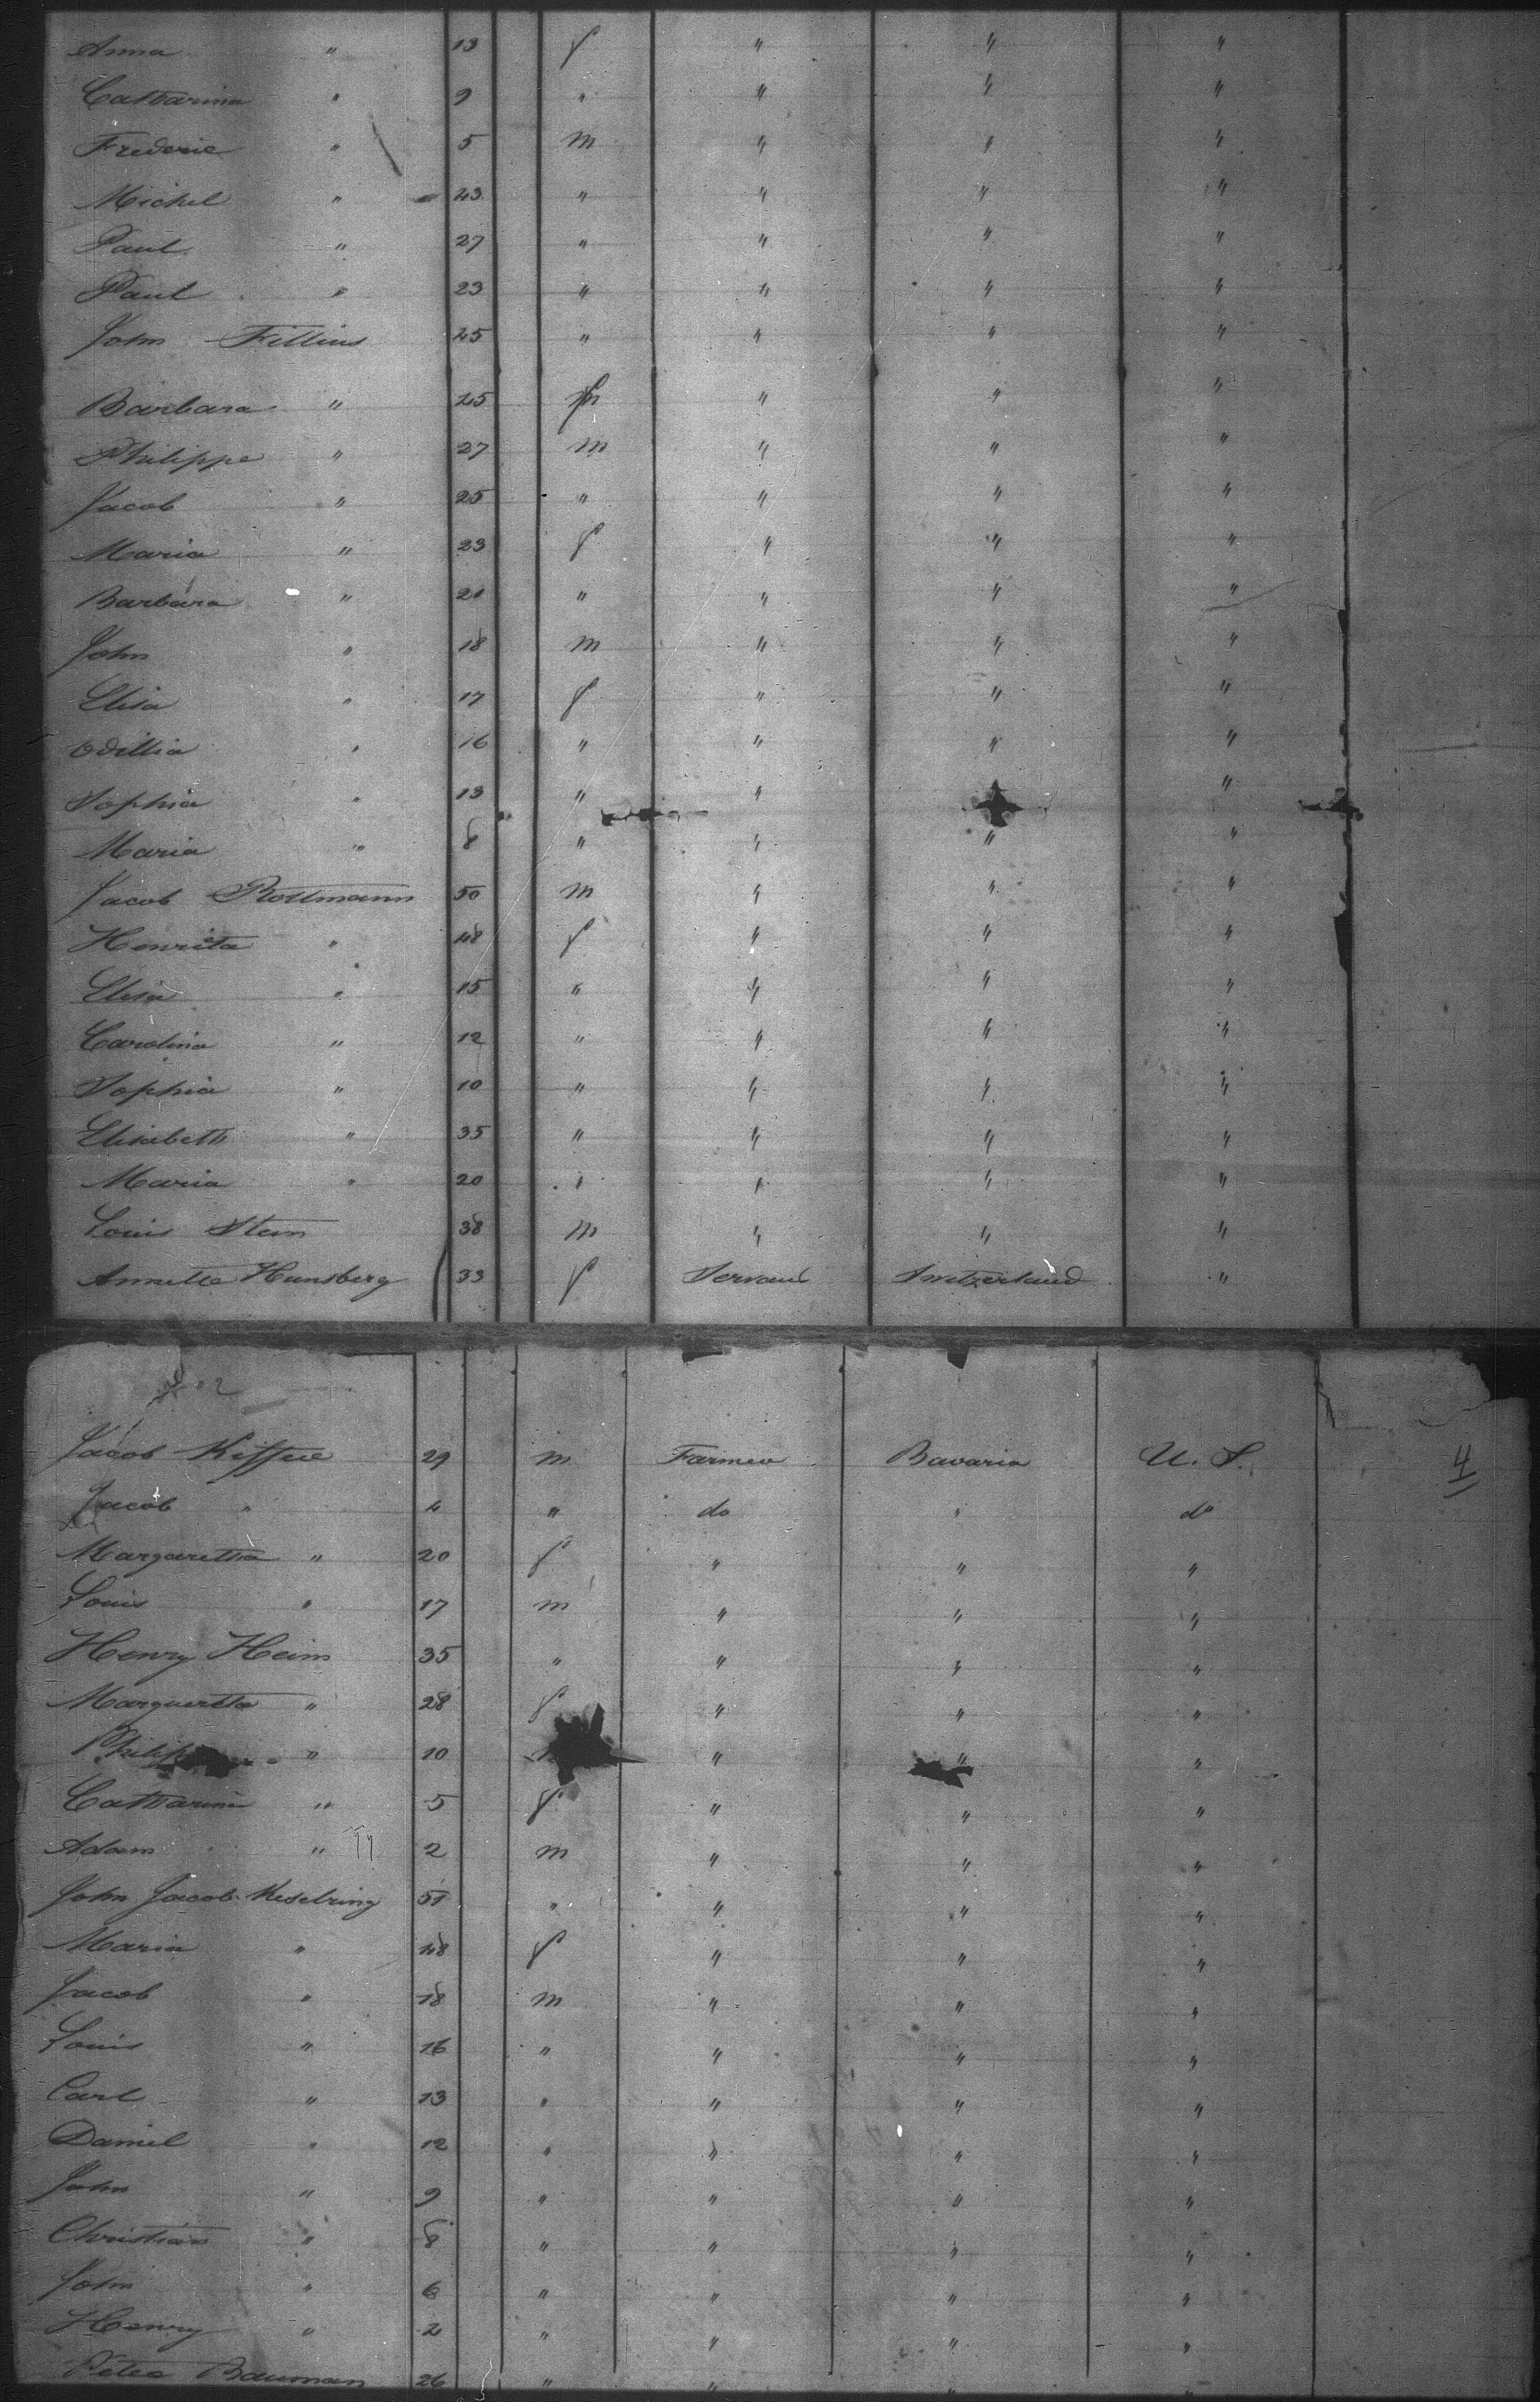 Anna " 13 f " " "
Catharina " 9 " " " "
Frederic " 5 m " " "
Michel " 43 " " " "
Paul " 27 " " " "
Paul " 23 " " " "
John Fillius 45 " " " "
Barbara " 45 f " " "
Philippe " 27 m " " "
Jacob " 25 " " " "
Maria " 23 f " " "
Barbara " 21 " " " "
John " 18 m " " "
Elisa " 17 f " " "
Odillia " 16 " " " "
Sophia " 13 " " "
Maria " 8 " " " "
Jacob Rottmann 50 m " " "
Henrita " 48 f " " "
Elisa " 15 " " " "
Carolina " 12 " " " "
Sophia " 10 " " " "
Elisabeth " 35 " " " "
Maria " 20 " " " "
Louis Stein 38 m " " "
Annette Hunsberg 33 f Servant Switzerland "
Jacob 29 m Farmer Bavaria U. S. 4
Jacob " 4 " do " do
Margaretha " 20 f " " "
Louis " 17 m " " "
Henry Heim 35 " " " "
Margaretta " 28 f " " "
Philipp " 10 " " "
Catharine " 5 f " " "
Adam " 2 m " " "
John Jacob Keselring 51 " " " "
Maria " 48 f " " "
Jacob " 18 m " " "
Louis " 16 " " " "
Carl " 13 " " " "
Daniel " 12 " " " "
John " 9 " " " "
Christian " 8 " " " "
John " 6 " " " "
Henry " 2 " " " "
Peter Bauman 26 " " " "